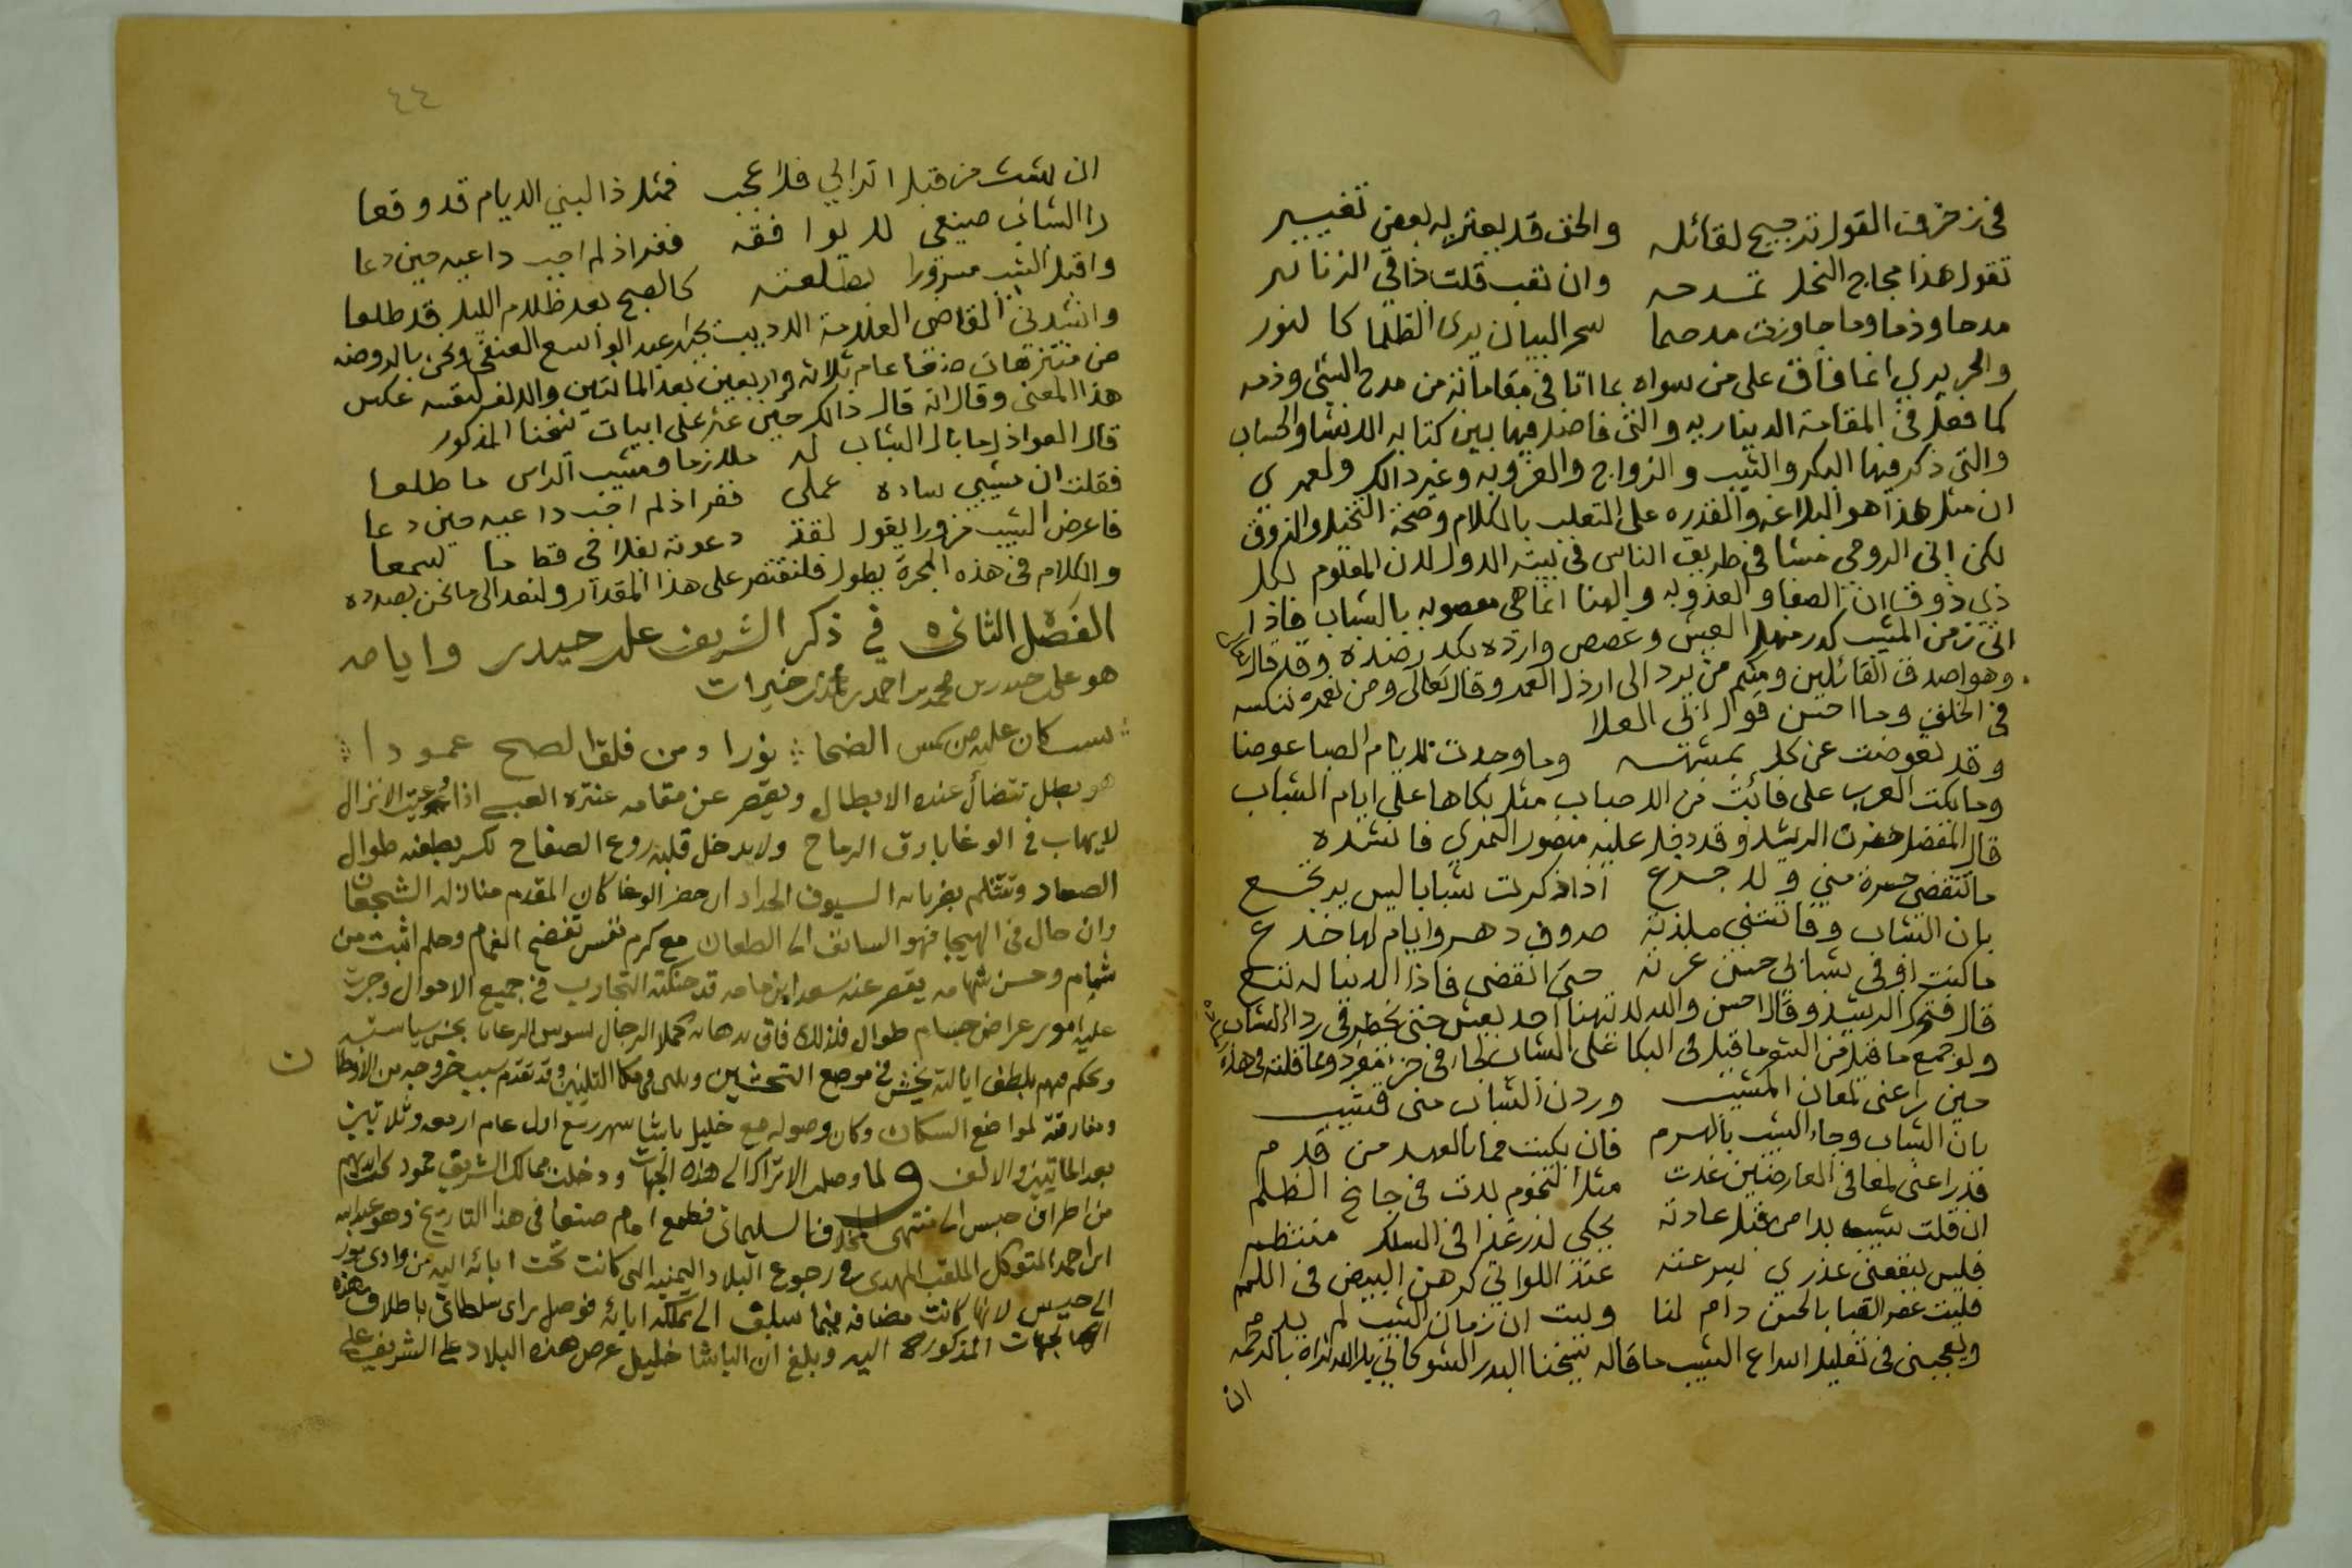 في زخرف القول ترجيح لقائله والحق قد يعتريه بعض تغيير
تقول هذا مجاج النحل تمدحه وان تعب قلت ذا قي الزنابير
مدحا وذما وما جاوزت مدحهما سحر البيان يرى الظلما كالنور
والحريري انما فاق على من سواه بما اتا في مقاماته من مدح الشي وذمه
كما فعل في المقامة الديناريه والتي فاضل فيها بين كتابه الانشا والحساب
والتي ذكر فيها البكر والثيب والزواج والعزوبه وغير ذالك ولعمري
ان مثل هذا هو البلاغه والقدره على التغلب بالكلام وصحة التخيل والذوق
لكن ابن الرومي مشا في طريق الناس في بيته الاول لان المعلوم لكل
ذي ذوق ان الصفا والعذوبه والهنا انما هي بالشباب فاذا
اتى زمن المشيب كدر منهل العيش وغصص وارده بكدر ضده وقد قال تعالى
وهو اصدق القائلين ومنكم من يرد الى ارذل العمر وقال تعالى ومن نعمره ننكسه
في الخلق وما احسن قول ابي العلا
وقد تعوضت عن كل بمشبهه وما وجدت لايام الصبا عوضا
وما بكت العرب على فائت من الاحباب مثل بكاها على ايام الشباب
قال المفضل حضرت الرشيد وقد دخل عليه منصور النمري فانشده
ما تنقضي حسرة مني ولا جزع اذا ذكرت شبابا ليس يرتجع
بان الشباب وفاتتني بلذته صروف دهر وايام لها خدع
ما كنت اوفي شبابي حسن غرته حتى انقضى فاذا الدنيا له تبع
قال فتحرك الرشيد وقال احسن والله لا يتهنا احد بعيش حتى يخطر في رداء الشباب
ولو جمع ما قيل من الشعر ما قيل في البكا على الشباب لجا في جزء مفرد ومما قلته في هذه الماده
حين راعني لمعان المشيب وردن الشباب مني قشيب
بان الشباب وجاء الشيب بالهرم فان بكيت فما بالعهد من قدم
قد راعني لمعا في العارضين غدت مثل النجوم بدت في جانح الظلم
ان قلت شيب بدا من قبل عادته يحكي لدر غدا في السلك منتظم
فليس ينفعني عذري لبرعته عند اللواتي كرهن البيض في اللمم
فليت عصر الصبا بالحسن دام لنا وليت ان زمان الشيب لم يدم
ويعجبني في تعليل اسراع الشيب ما قاله شيخنا البدر الشوكاني بل الله ثراه بالرحمه
ان
٤٤
ان شبت من قبل اترابي فلا عجب فمثل ذا لبني الايام قد وقعا
را الشباب صنيعي لا يوافقه ففر اذ لم اجب داعيه حين دعا
واقبل الشيب مزورا بطلعته كالصبح بعد ظلام الليل قد طلعا
وانشدني القاضي العلامة الاديب عبد الواسع العنقي ونحن بالروضه
من منتزهات صنعا عام ثلاثه واربعين بعد المائتين والالف لنفسه عكس
هذا المعنى وقال انه قال ذالك حين عثر على ابيات شيخنا المذكور
قال العواذل ما بال الشباب له ملازما ومشيب الراس ما طلعا
فقلت ان مشيبي ساءه عملي ففر اذ لم اجب داعيه حين دعا
فاعرض الشيب مزورا يقول لقد دعوته بفلاحي قط ما سمعا
والكلام في هذه المجرة يطول فلنقتصر على هذا المقدار ولنعد الى ما نحن بصدده
الفصل الثاني في ذكر الشريف علي حيدر وايامه
هو علي حيدر بن محمد بن احمد بن محمد خيرات
نسب كان عليه من شمس الضحا نورا ومن فلق الصبح عمودا
هو بطل تتضأل عنده الابطال ويقصر عن مقامه عنترة العبسي اذا دعيت الانزال
لا يهاب في الوغا بارق الرماح ولا يدخل قلبه روع الصفاح تكسر بطعنه طوال
الصعاد وتتثلم بضرباته السيوف الحداد ان حضر الوغا كان المقدم منازله الشجعان
وان حال في الهيجا فهو السابق الى الطعان مع كرم نفس تفضح الغمام وحلم اثبت من
شمام وحسن شهامه يقصر عنه سعد ابن مامه قد حنكته التجارب في جميع الاحوال وجرت
عليه امور عراض جسام طوال فلذلك فاق بدهائه كملا الرجال يسوس الرعايا بحسن سياسته
ويحكم فيهم بلطف ايالته يخشن في موضع التخشين ويلين في مكان التليين وقد تقدم سبب خروجه من الاوطان
ومفارقته لمواضع السكان وكان وصوله مع خليل باشا شهر ربيع اول عام اربعه وثلاثين
بعد المائتين والالف ولما وصلت الاتراك الى هذه الجهات ودخلت ممالك الشريف حمود تحت ايديهم
من اطراف حيس الى منتهى المخلاف السليماني فطمع امام صنعا في هذا التاريخ وهو عبد الله
ابن احمد المتوكل الملقب المهدي في رجوع البلاد اليمنيه التي كانت تحت ابائه اليه من وادي مور
الى حيس لانها كانت مضافه فيما سلف الى مملكة ابائه فوصل براى سلطاني باطلاق هذه
الجهات المذكورة اليه وبلغ ان الباشا خليل عرض هذه البلاد على الشريف علي